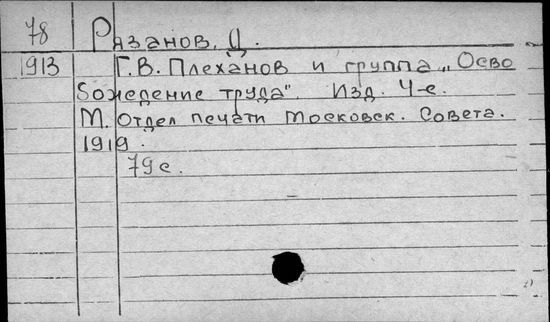 78 Рязанов, Д.
1913 Г. В. Плеханов и группа „Осво
бождение труда". Изд. 4-е.
М. Отдел печати Московск. Совета.
1919.
79 с.